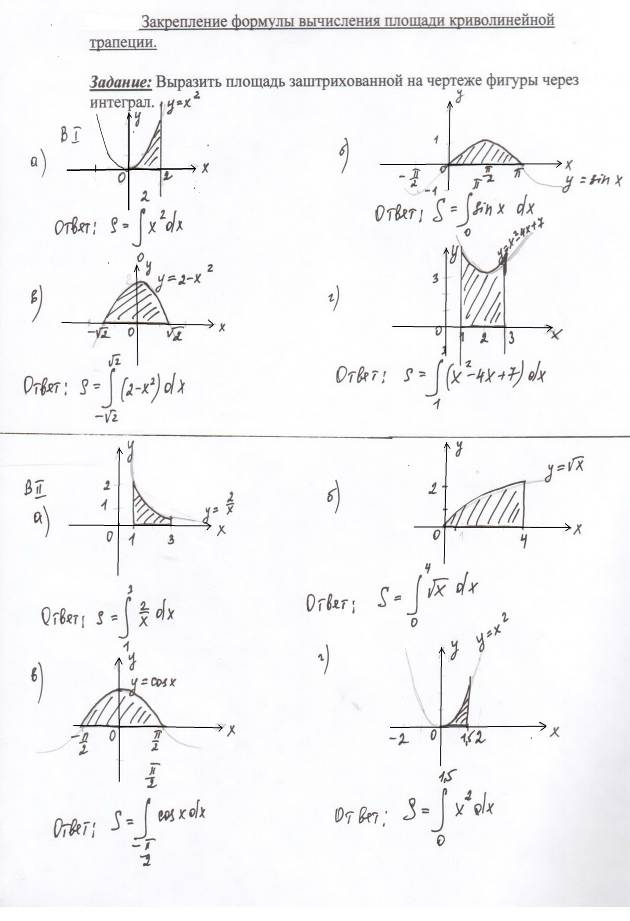 Закрепление формулы вычисления площади криволинейной
трапеции.
Задание: Выразить площадь заштрихованной на чертеже фигуры через
интеграл.
В I
а)
y
y=x²
0
2
x
Ответ: S = ∫₀² x² dx
б)
y
1
-π/2
0
π/2
π
x
-1
y = sin x
Ответ: S = ∫₀^π sin x dx
в)
y
y=2-x²
-√2
0
√2
x
Ответ: S = ∫_{-√2}^{√2} (2-x²) dx
г)
y
y=x²-4x+7
3
0
1
2
3
x
Ответ: S = ∫₁³ (x²-4x+7) dx
В II
а)
y
2
1
y = 2/x
0
1
3
x
Ответ: S = ∫₁³ 2/x dx
б)
y
y=√x
2
0
4
x
Ответ: S = ∫₀⁴ √x dx
в)
y
y=cosx
-π/2
0
π/2
x
Ответ: S = ∫_{-π/2}^{π/2} cosx dx
г)
y
y=x²
-2
0
1,5
2
x
Ответ: S = ∫₀^{1,5} x² dx